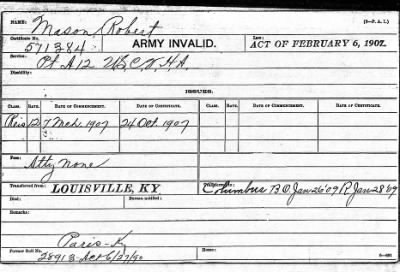 NAME: Mason, Robert (3—P. A. I.)
Certificate No. 571384 ARMY INVALID. Law: ACT OF FEBRUARY 6, 1907.
Service: Pt. A 12 U.S.C.V.H.A.
Disability:
ISSUES.
CLASS. RATE. DATE OF COMMENCEMENT. DATE OF CERTIFICATE. CLASS. RATE. DATE OF COMMENCEMENT. DATE OF CERTIFICATE.
Reis 12 7 Mch. 1907 24 Oct. 1907
Fees: Atty None
Transferred from LOUISVILLE, KY Columbus B.O. Jan 26 '09 R Jan 28 '09
Died: Bureau notified:
Remarks:
Paris - Ky
Former Roll No. 28918 - Act 6/27/90